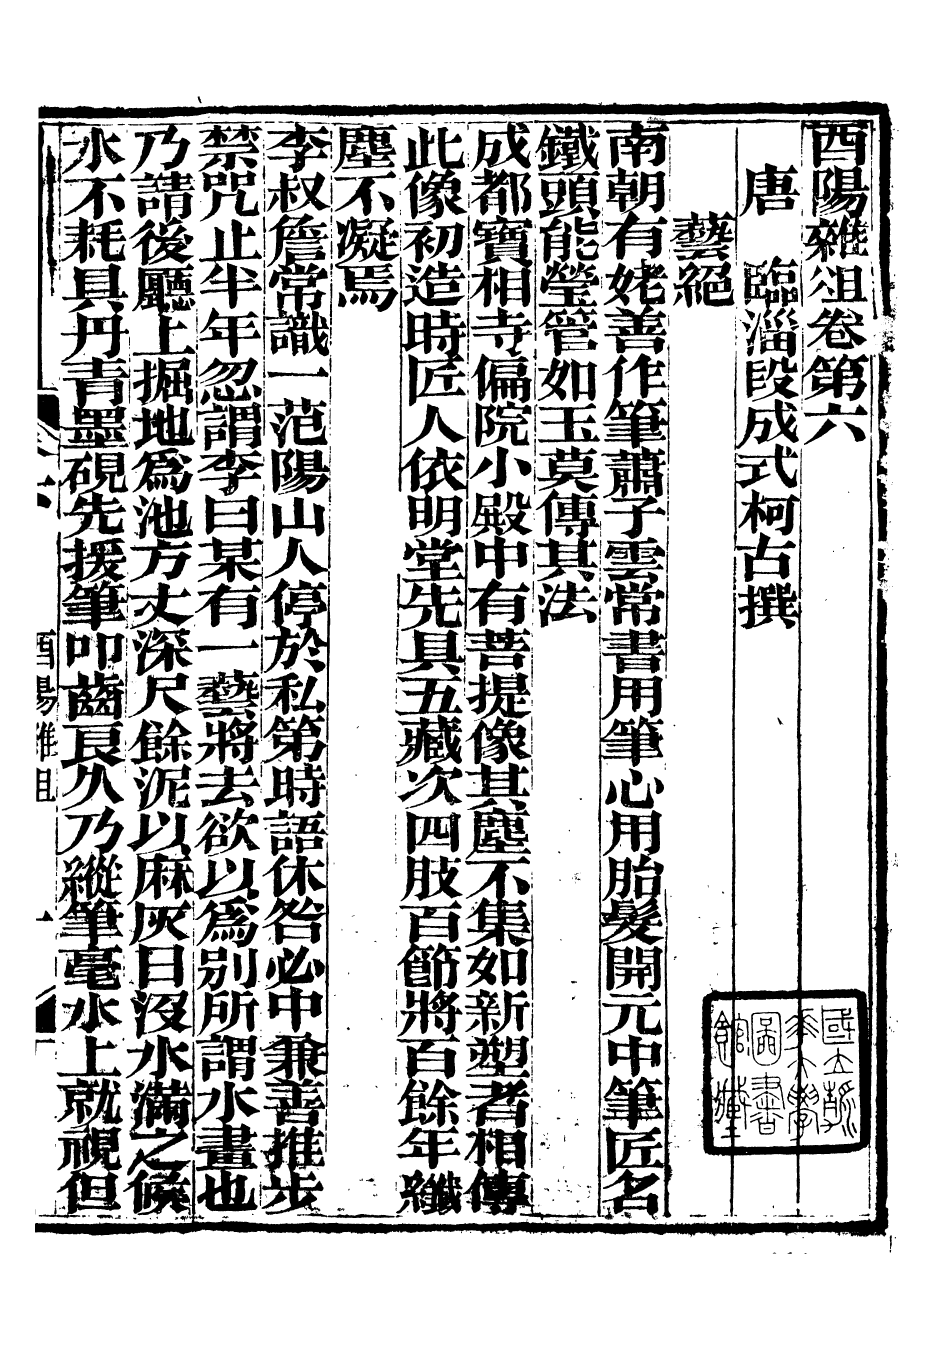 酉陽雜俎卷第六
唐　臨淄段成式柯古撰
藝絕
南朝有姥善作筆蕭子雲常書用筆心用胎髮開元中筆匠名
鐵頭能瑩管如玉莫傳其法
成都寶相寺偏院小殿中有菩提像其塵不集如新塑者相傳
此像初造時匠人依明堂先具五藏次四肢百節將百餘年纖
塵不凝焉
李叔詹常識一范陽山人停於私第時語休咎必中兼善推步
禁咒止半年忽謂李曰某有一藝將去欲以爲別所謂水畫也
乃請後廳上掘地爲池方丈深尺餘泥以麻灰日沒水滿之候
水不耗具丹青墨硯先援筆叩齒良久乃縱筆毫水上就視但
酉陽雜俎
國立清華大學圖書館藏